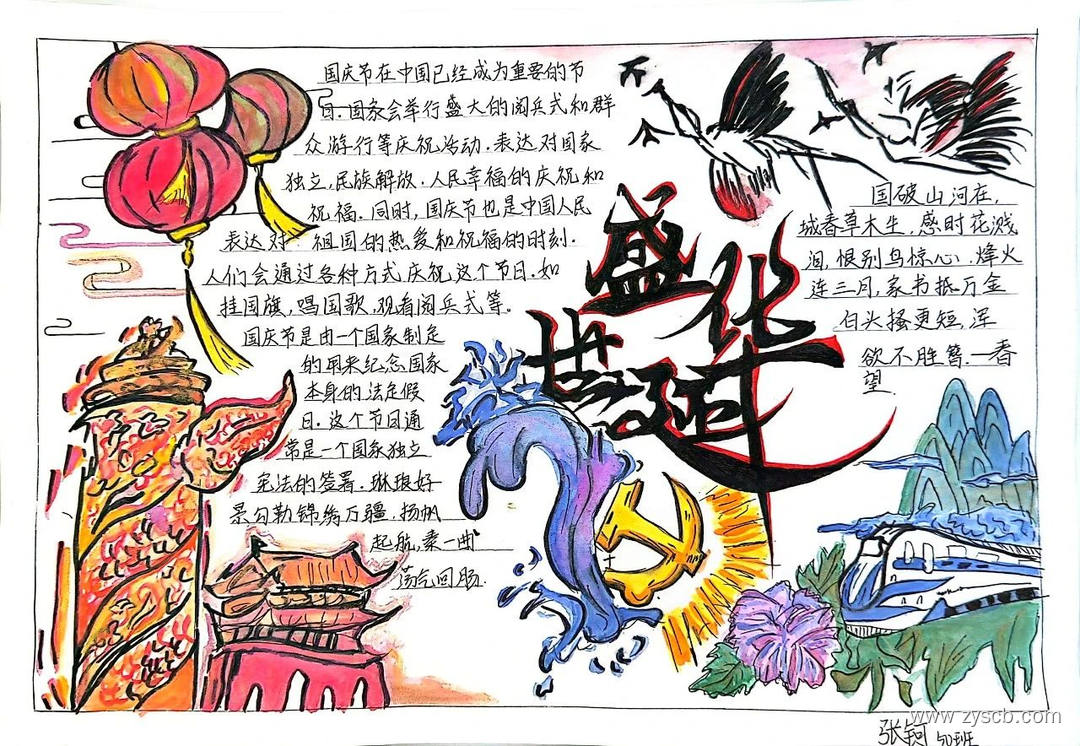 国庆节在中国已经成为重要的节
日.国家会举行盛大的阅兵式和群
众游行等庆祝活动.表达对国家
独立,民族解放.人民幸福的庆祝和
祝福.同时,国庆节也是中国人民
表达对祖国的热爱和祝福的时刻.
人们会通过各种方式庆祝这个节日.如
挂国旗,唱国歌,观看阅兵式等。
国庆节是由一个国家制定
的用来纪念国家
本身的法定假
日.这个节日通
常是一个国家独立
宪法的签署.琳琅好
景勾勒锦绣万疆.扬帆
起航,奏一曲
荡气回肠.
盛世华诞
国破山河在,
城春草木生,感时花溅
泪,恨别鸟惊心.烽火
连三月,家书抵万金
白头搔更短,浑
欲不胜簪.一春
望
张钶 50班
www.zyscb.com